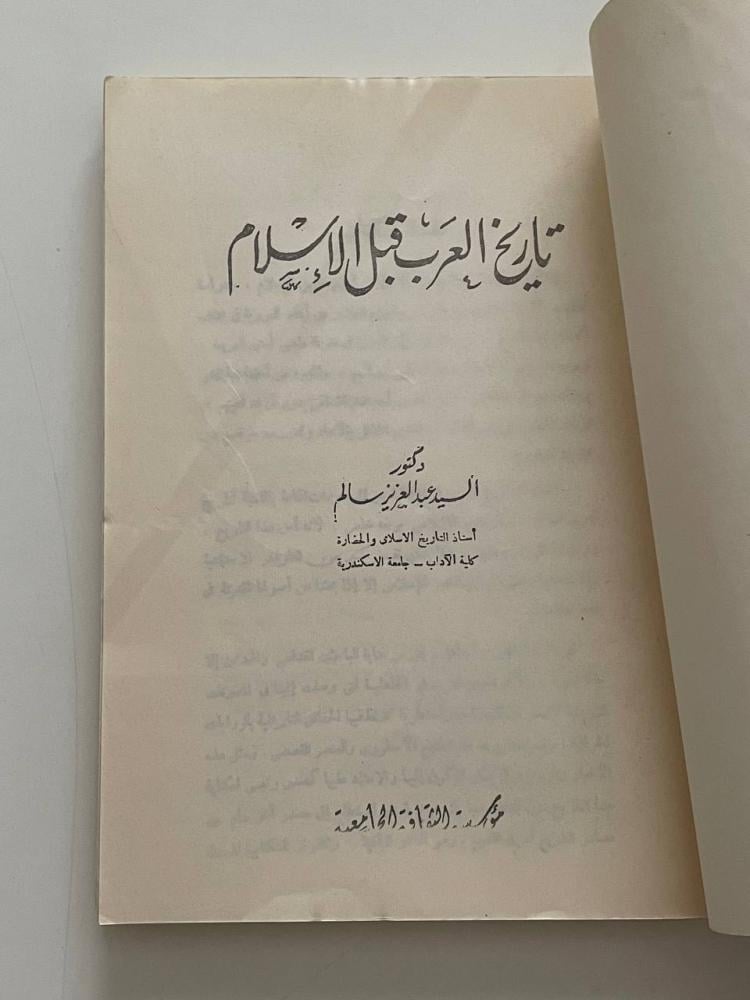 تاريخ العرب قبل الإسلام
دكتور
السيد عبد العزيز سالم
أستاذ التاريخ الاسلامى والحضارة
كلية الآداب — جامعة الاسكندرية
مؤسسة الثقافة الجامعية